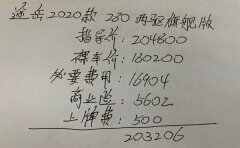 途岳2020款 280 两驱旗舰版
指导价：204800
裸车价：180200
必要费用：16904
商业险：5602
上牌费：500
203206